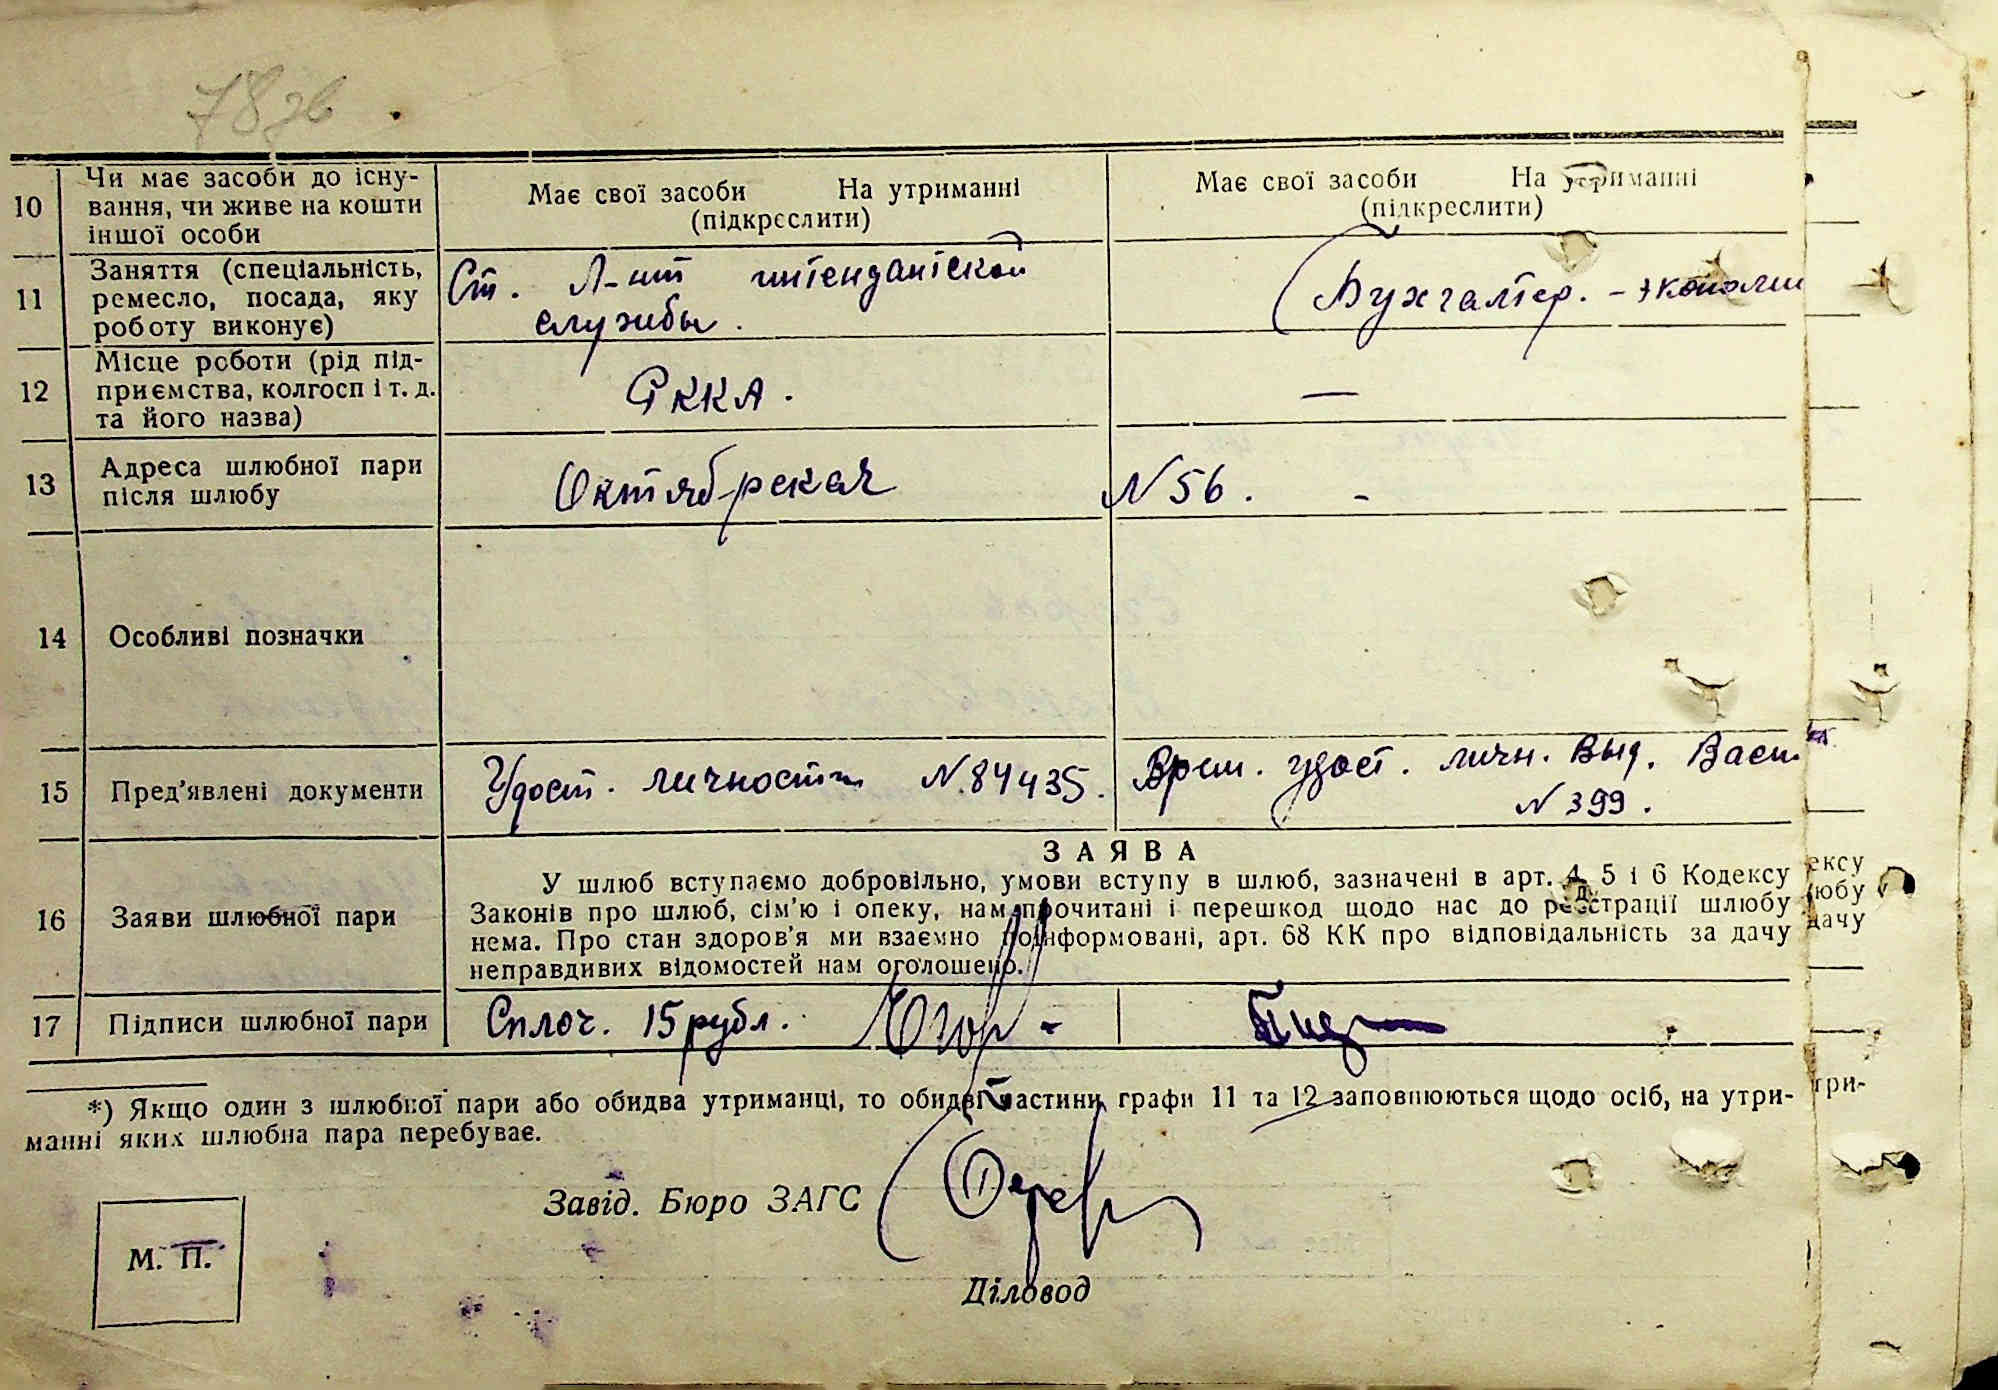 78 зв
10 Чи має засоби до існу-
вання, чи живе на кошти
іншої особи
Має свої засоби На утриманні
(підкреслити)
Має свої засоби На утриманні
(підкреслити)
11 Заняття (спеціальність,
ремесло, посада, яку
роботу виконує)
Ст. Л-нт интендантской
службы.
Бухгалтер. - экономи
12 Місце роботи (рід під-
приємства, колгосп і т. д.
та його назва)
РККА.
—
13 Адреса шлюбної пари
після шлюбу
Октябрьская N 56. -
14 Особливі позначки
15 Пред'явлені документи
Удост. личности N 84435.
Врем. удост. личн. Выд. Васи
N 399.
16 Заяви шлюбної пари
ЗАЯВА
У шлюб вступаємо добровільно, умови вступу в шлюб, зазначені в арт. 4, 5 і 6 Кодексу
Законів про шлюб, сім'ю і опеку, нам прочитані і перешкод щодо нас до реєстрації шлюбу
нема. Про стан здоров'я ми взаємно поінформовані, арт. 68 КК про відповідальність за дачу
неправдивих відомостей нам оголошено.
ексу
любу
дачу
17 Підписи шлюбної пари
Сплоч. 15 рубл.
*) Якщо один з шлюбної пари або обидва утриманці, то обидві частини графи 11 та 12 заповнюються щодо осіб, на утри-
манні яких шлюбна пара перебуває.
три-
Завід. Бюро ЗАГС
М. П.
Діловод